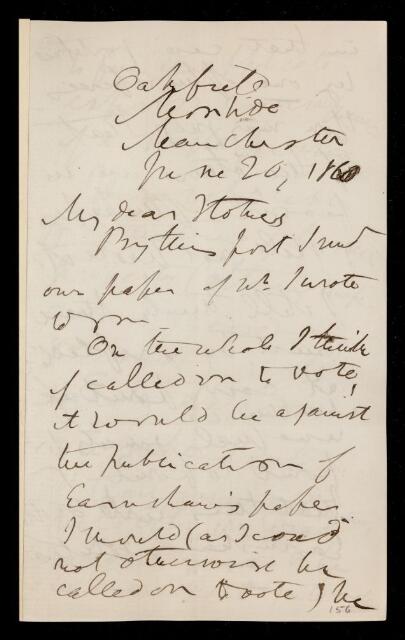 Oakfield
Moss Side
Manchester
June 20, 1860
My dear Stokes
By this post I send
our paper of wh. I wrote
to you
On the whole I think
if called on to vote,
it would be against
the publication of
Earnshaw's paper
I should (as I could
not otherwise be
called on to vote) be
156